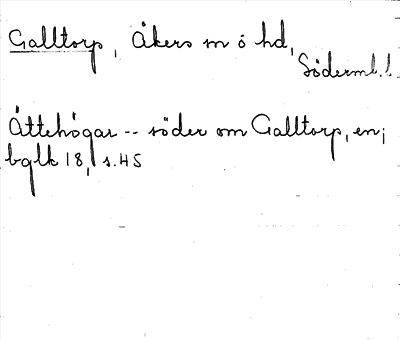 Galltorp, Åkers sn ö hd,
Söderml.l.
Ättehögar -- söder om Galltorp, en;
bglk 18, s.45